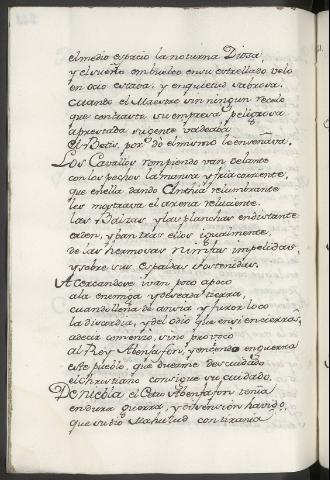 el medio espacio la noturna Diosa,
y el sueño embuelto en su estrellado velo
en ocio estava, y en quietud sabrosa,
cuando el Maestro sin ningun recelo
que contraste su empresa peligrosa
aprestada su gente vadeava
el Betis, por do el mismo le enseñava.
Los Cavallos rompiendo van delante
con los pechos la mansa y fria corriente,
que en ella dando Cinthia relumbrante
les mostrava el arena reluciente.
las Balzas, y las planchas en distante
caen, y van tras ellos igualmente,
de las hermosas Nimfas impelidas,
y sobre sus espaldas sostenidas.
Acercandose ivan poco a poco
a la enemiga y deseada tierra,
cuando llena de ansia y furor loco
la discordia, y del odio que en si encierra,
a decir comenzo, si no provoco
al Rey Abenfafon, y enciendo en guerra
este pueblo, que duerme descuidado
el Christiano consigue su cuidado.
De Niebla el Cetro Abenfafon tenia
en dura guerra, y disension havido,
que su dio Mahulud con tirania